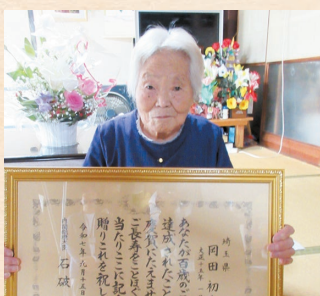 埼玉県
岡田 初
大正十五年一
あなたが百歳のご
達成されたこと
慶賀にたえませ
ご長寿をことほぐ
当たりここに記
贈りこれを祝し
令和七年九月十五日
石破